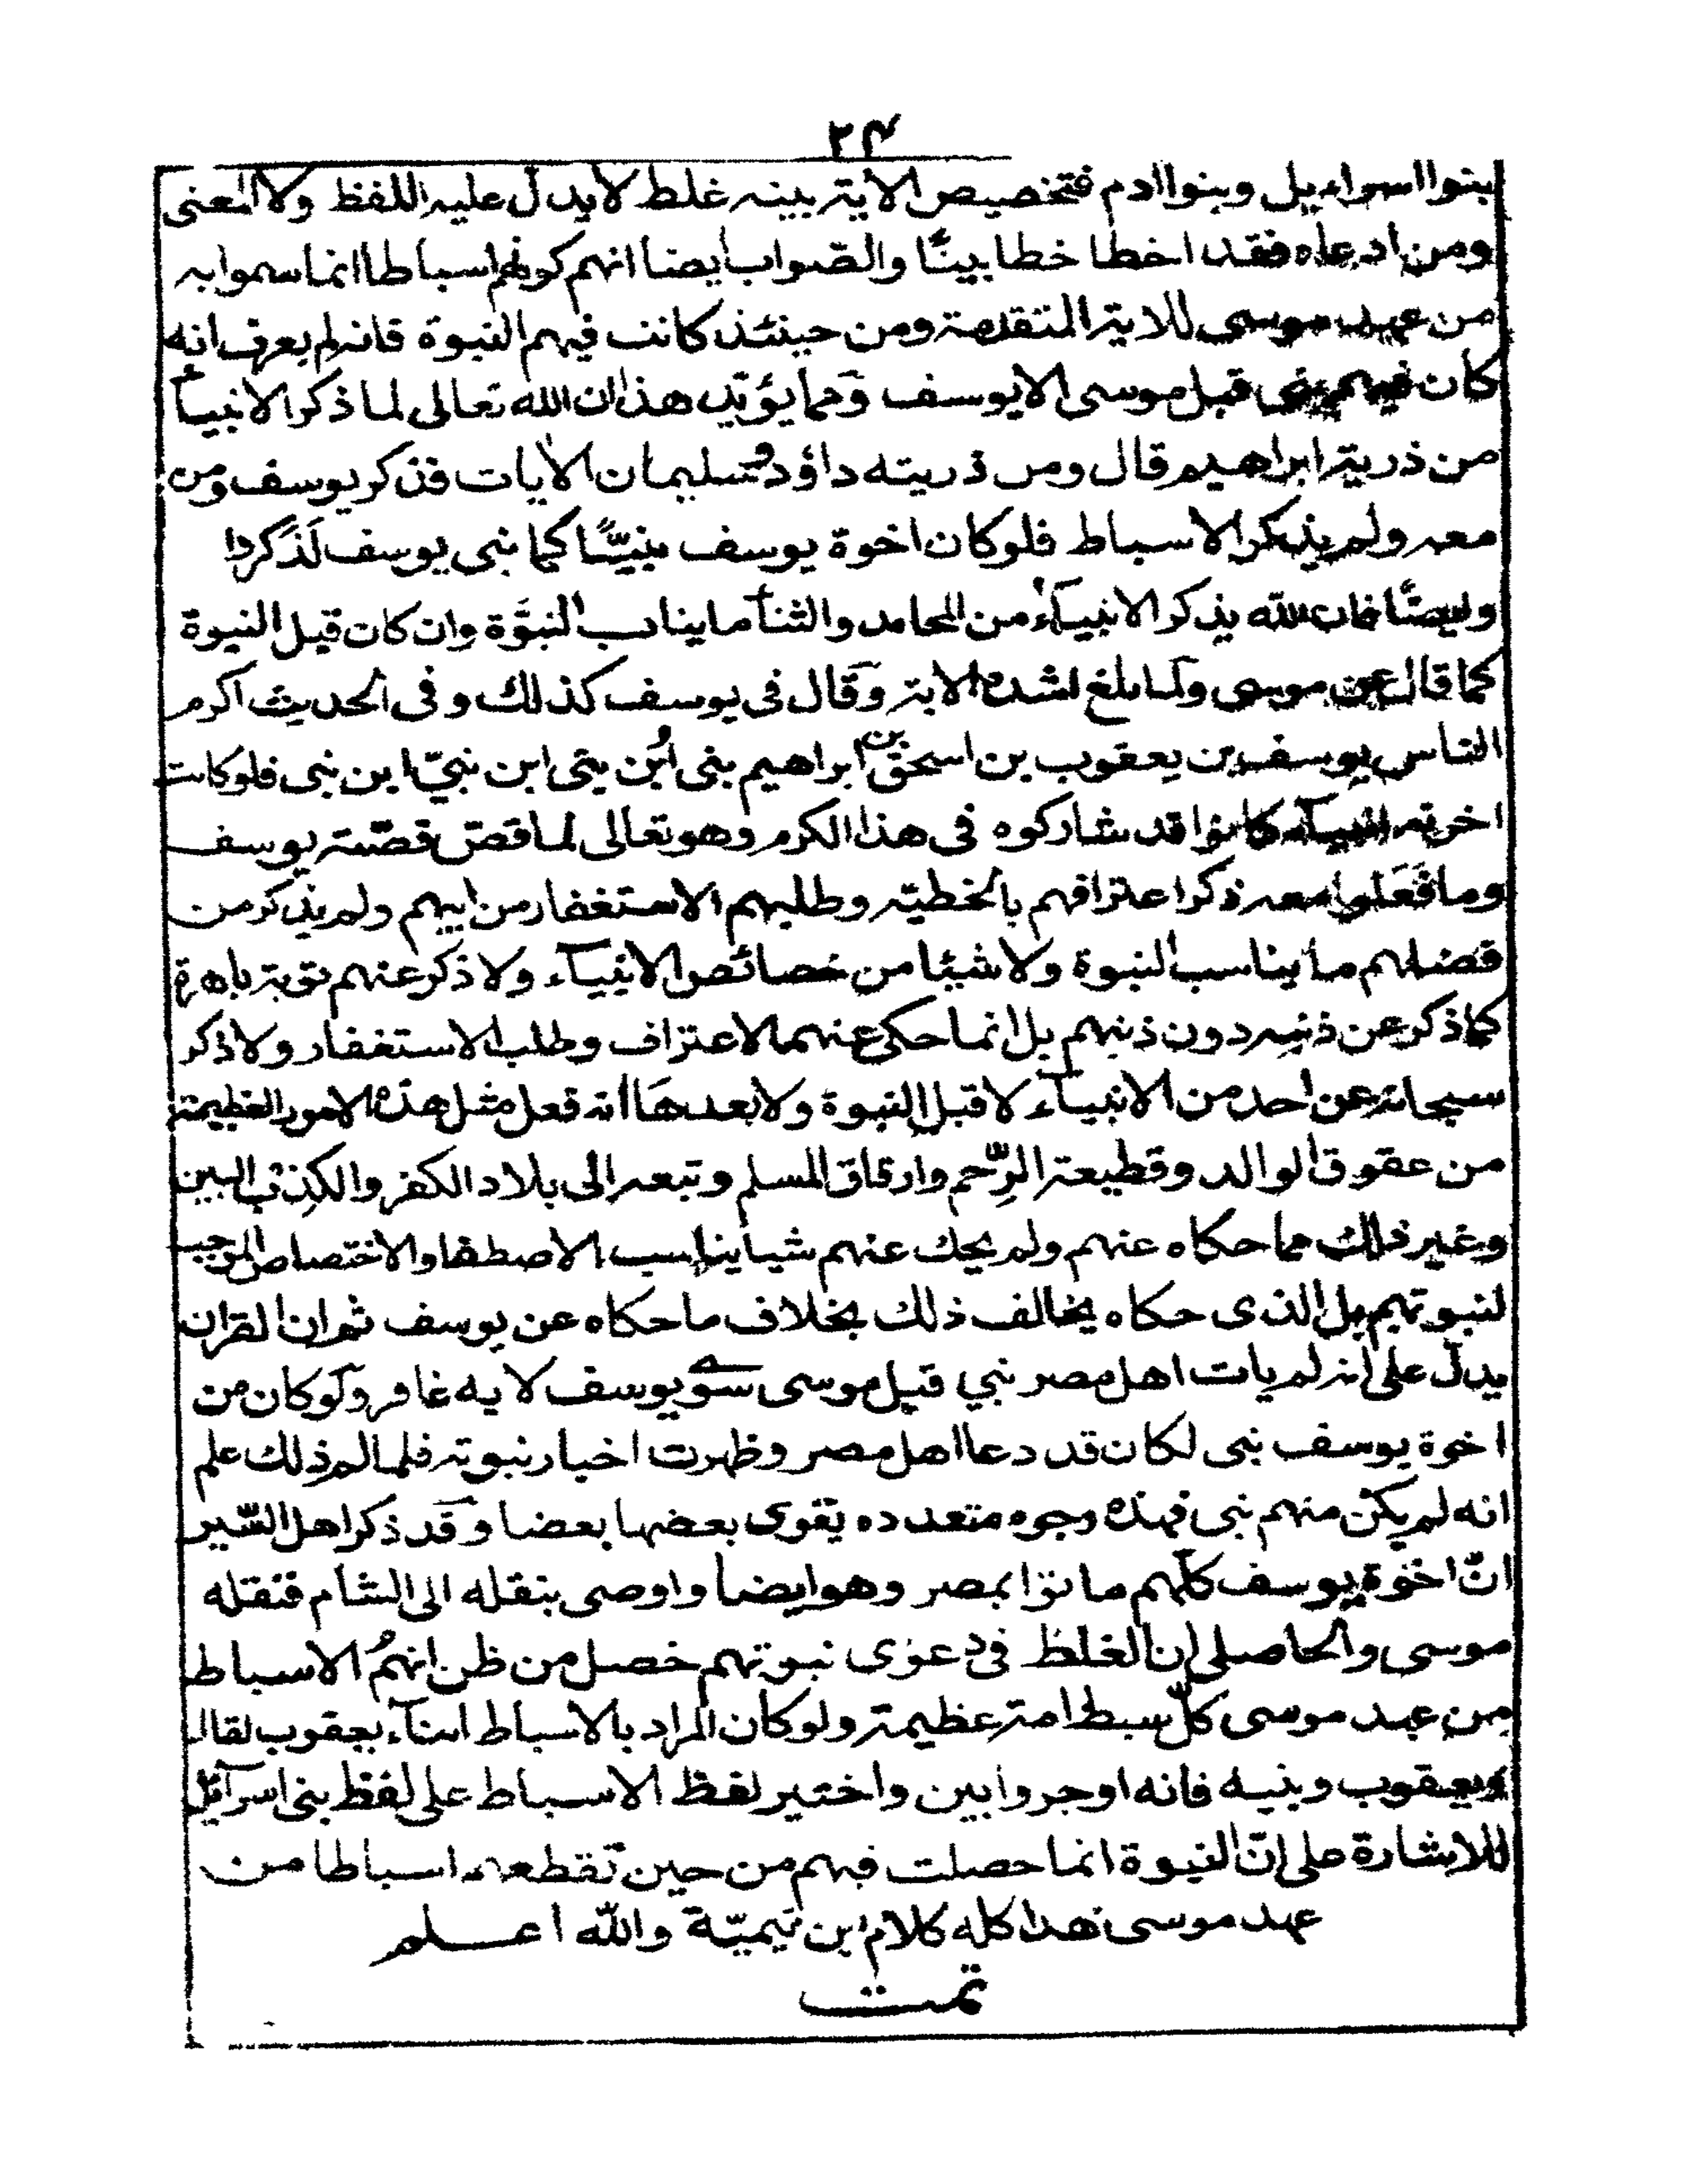 ٢٤
بنوا اسراءيل وبنوا ادم فتخصيص الاية ببنيه غلط لايدل عليه اللفظ ولا المعنى
ومن ادعاه فقد اخطا خطا بينًا والصواب ايضا انهم كونهم اسباطا انما سموا به
من عهد موسى للاية المتقدمة ومن حينئذ كانت فيهم النبوة فانه لم يعرف انه
كان فيهم نبي قبل موسى الا يوسف ومما يؤيد هذا ان الله تعالى لما ذكر الانبيآء
من ذرية ابراهيم قال ومن ذريته داؤد وسليمان الايات فذكر يوسف ومن
معه ولم يذكر الاسباط فلو كان اخوة يوسف نبيًّا كما نبى يوسف لَذكروا
وايضًا فان الله يذكر الانبيآء من المحامد والثنآء ما يناسب النبوَّة وان كان قبل النبوة
كما قال عن موسى ولما بلغ اشده الاية وقال فى يوسف كذلك و فى الحديث اكرم
الناس يوسف بن يعقوب بن اسحق بن ابراهيم نبى ابُن نبى ابن نبيّ ابن نبى فلو كانت
اخوته انبيآء كانوا قد شاركوه فى هذا الكرم وهو تعالى لما قصّ قصّة يوسف
وما فَعَلوا معه ذكر اعترافهم بالخطيّه وطلبهم الاستغفار من ابيهم ولم يذكر من
فضلهم ما يناسب النبوة ولا شيئا من خصائص الانبيآء ولا ذكر عنهم توبة باهرة
كما ذكر عن ذنبه دون ذنبهم بل انما حكى عنهم الاعتراف وطلب الاستغفار ولا ذكر
سبحانه عن احد من الانبيآء لا قبل النبوة ولا بعدهَا انه فعل مثل هذه الامور العظيمة
من عقوق الوالد وقطيعة الرِّحم وارقاق المسلم وتبعه الى بلاد الكفر والكذب البين
وغير ذلك مما حكاه عنهم ولم يحك عنهم شيا يناسب الاصطفا والاختصاص الموجب
لنبوتهم بل الذى حكاه يخالف ذلك بخلاف ما حكاه عن يوسف ثم ان القران
يدل على انه لم يات اهل مصر نبي قبل موسى سوى يوسف لايه غافر ولو كان من
اخوة يوسف نبى لكان قد دعا اهل مصر وظهرت اخبار نبوته فلما لم ذلك علم
انه لم يكن منهم نبى فهذه وجوه متعدده يقوى بعضها بعضا وقد ذكر اهل السّير
انّ اخوة يوسف كلهم ماتوا بمصر وهو ايضا واوصى بنقله الى الشام فنقله
موسى والحاصل ان الغلظ فى دعوى نبوتهم خصل من ظن انهمُ الاسباط
من عهد موسى كلّ سبط امة عظيمة ولو كان المراد بالاسباط ابنآء يعقوب لقال
ويعقوب وبنيه فانه اوجر وابين واختير لفظ الاسباط على لفظ بنى اسرآئيل
للاشارة على انّ النبوة انما حصلت فيهم من حين تقطعهم اسباطا من
عهد موسى هذا كله كلام ابن تيميّة والله اعلم
تمت